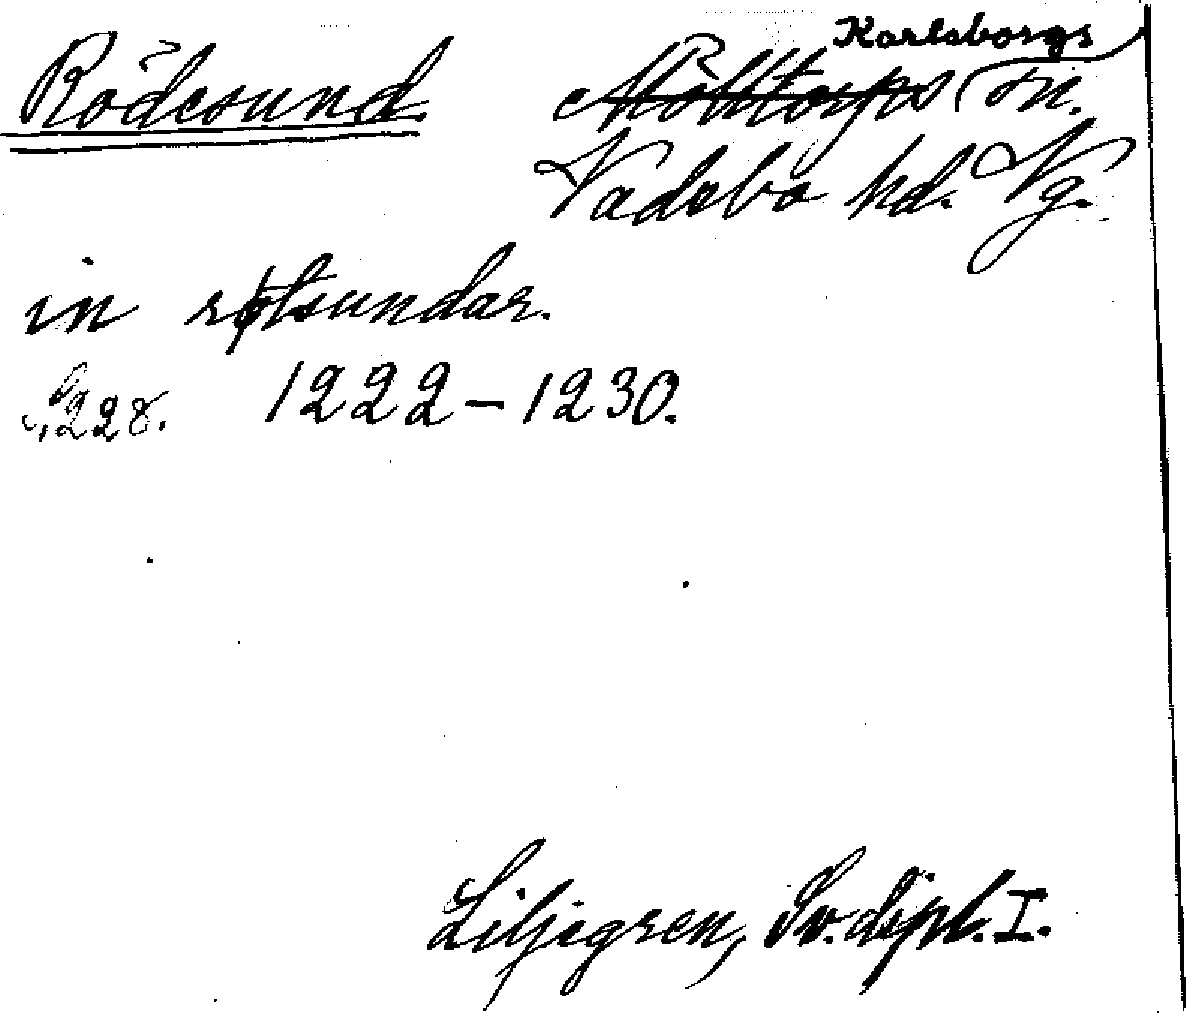 Karlsborgs
Rödesund Mölltorps sn.
Vadsbo hd. Vg.
in røtsundar.
s. 228. 1222–1230.
Liljegren, Sv. dipl. I.